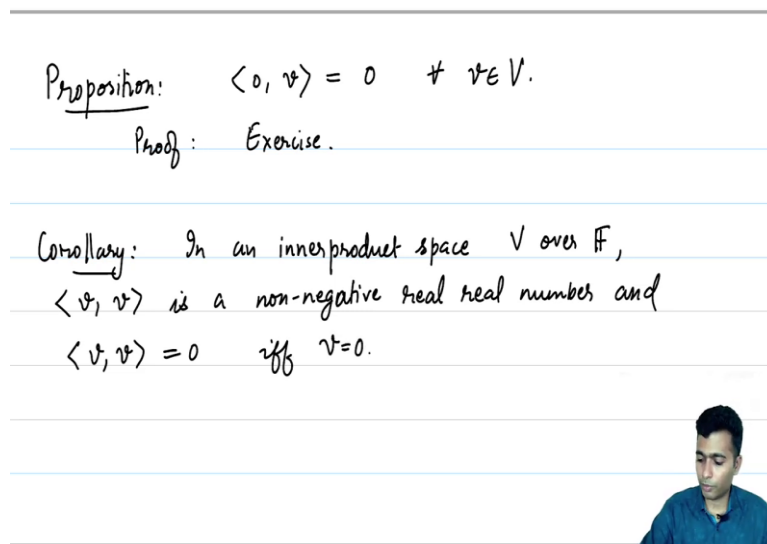 Proposition: ⟨0, v⟩ = 0 ∀ v∈ V.
Proof: Exercise.
Corollary: In an inner product space V over 𝔽,
⟨v, v⟩ is a non-negative real real number and
⟨v, v⟩ = 0 iff v=0.